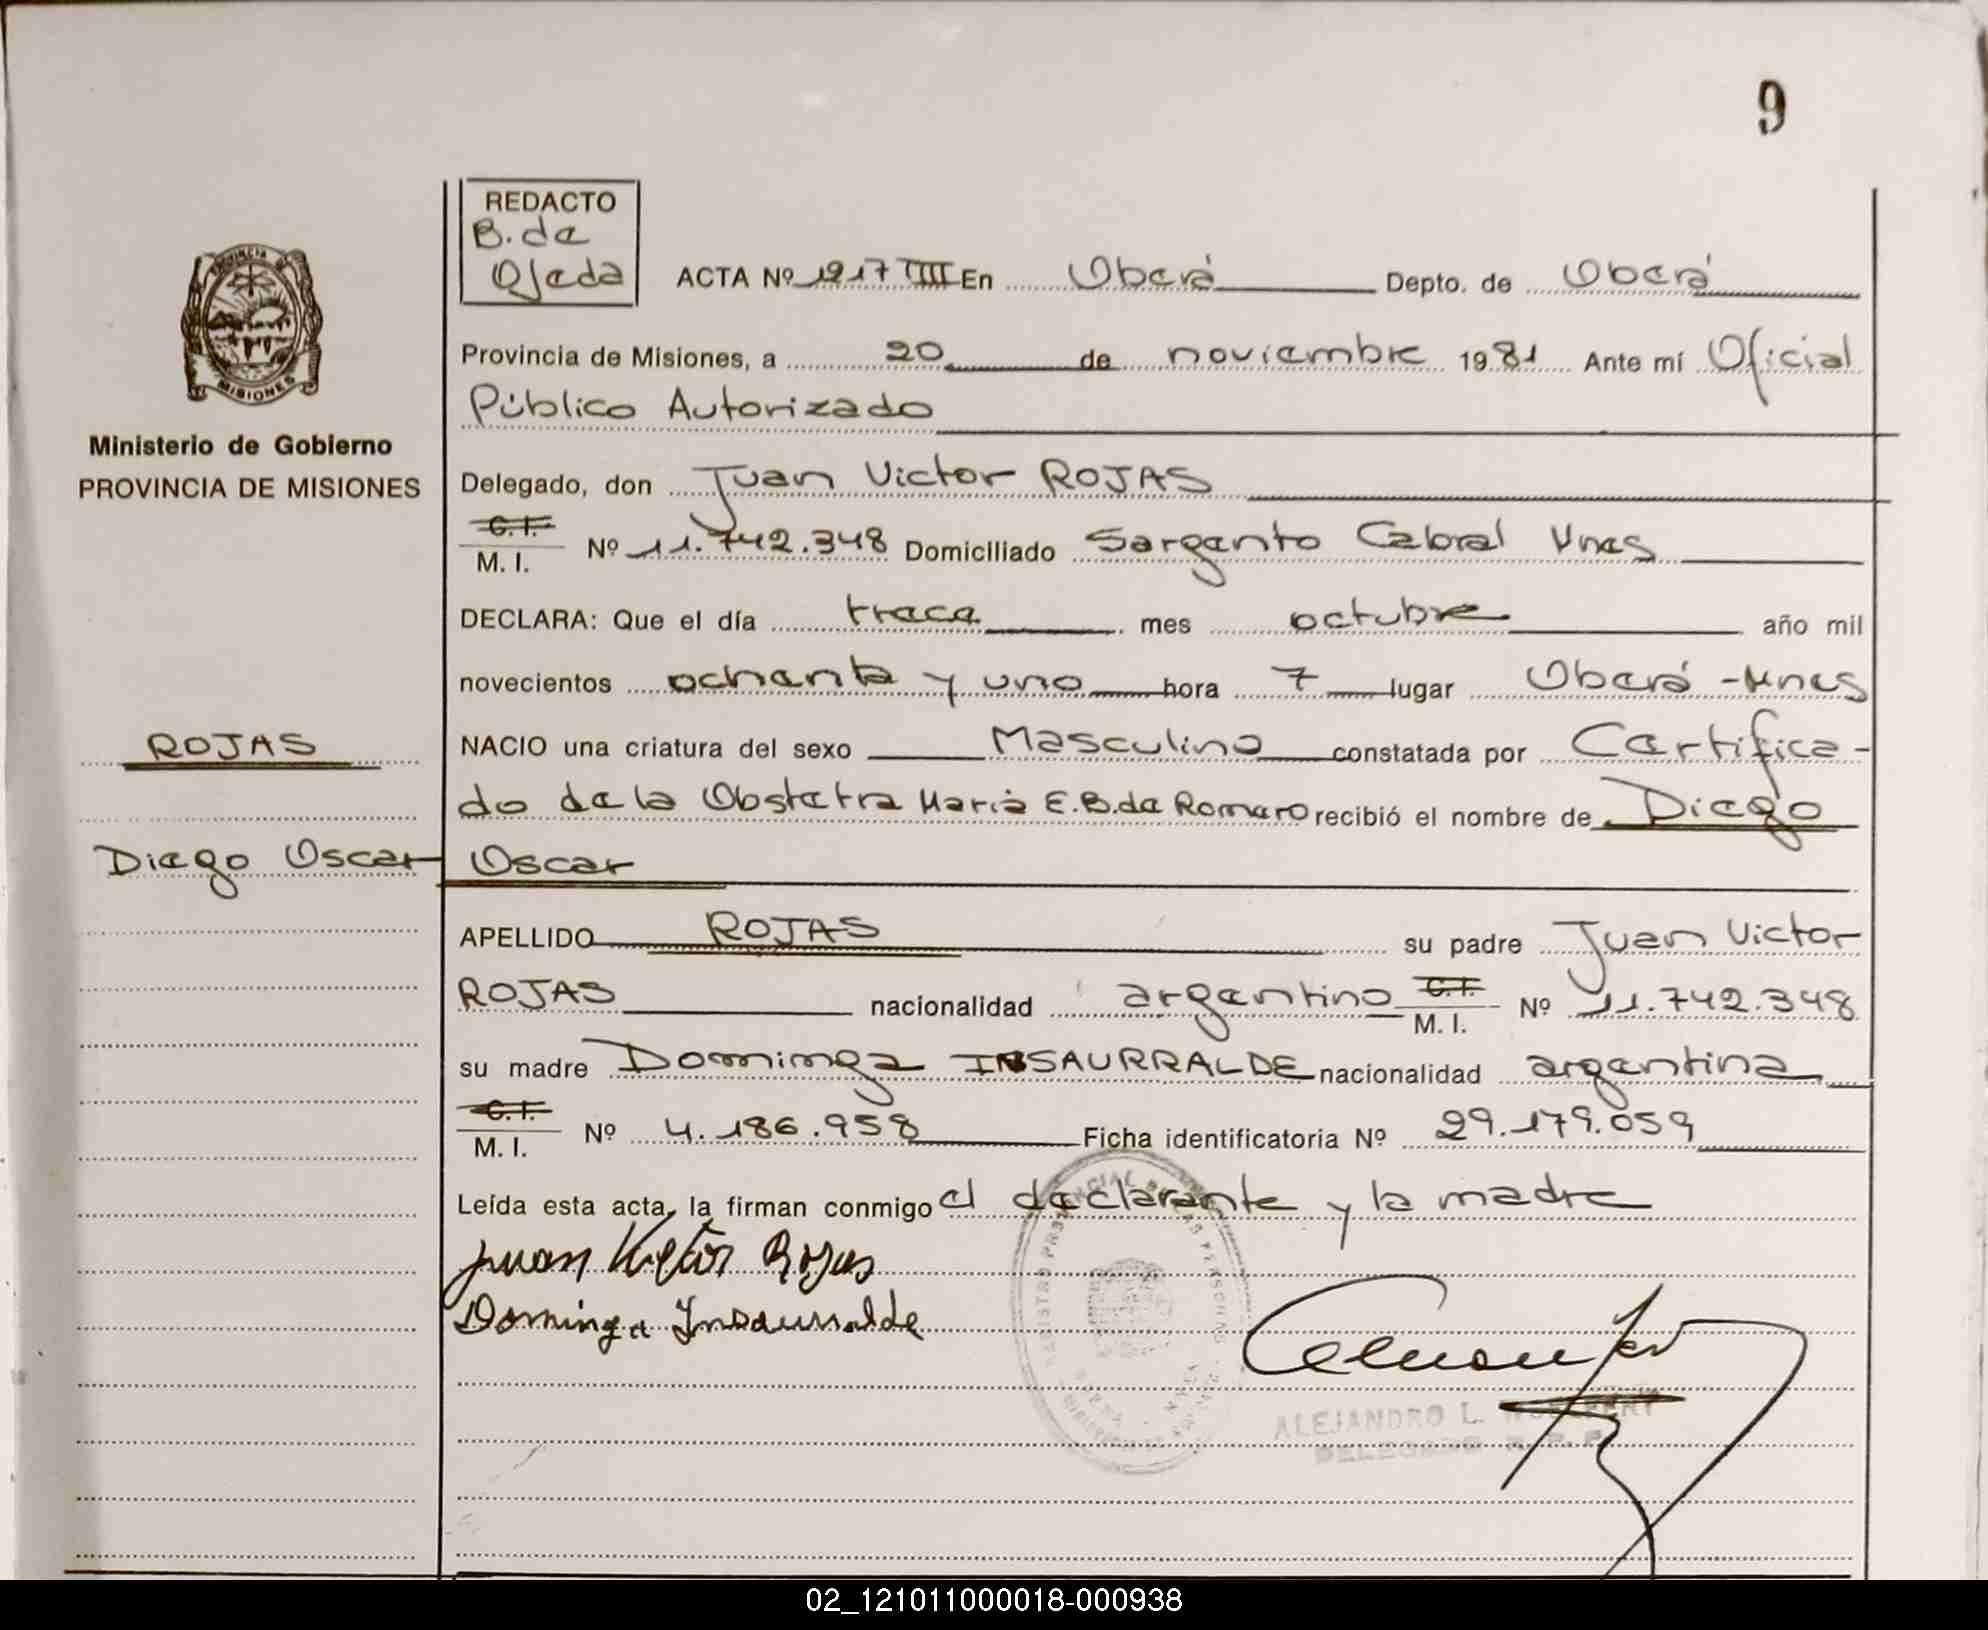 9
REDACTO
B. de
Ojeda
ACTA Nº 1217 TIII En Oberá Depto. de Oberá
Provincia de Misiones, a 20 de noviembre 1981 Ante mí Oficial
Público Autorizado
Ministerio de Gobierno
PROVINCIA DE MISIONES
Delegado, don Juan Victor ROJAS
C. I.
M. I. Nº 11.742.348 Domiciliado Sargento Cabral Mnes
DECLARA: Que el día trece mes octubre año mil
novecientos ochenta y uno hora 7 lugar Oberá - Mnes
ROJAS
NACIO una criatura del sexo Masculino constatada por Certifica-
do de la Obstetra María E.B. de Romero recibió el nombre de Diego
Diego Oscar
Oscar
APELLIDO ROJAS su padre Juan Victor
ROJAS nacionalidad argentino C. I. M. I. Nº 11.742.348
su madre Dominga INSAURRALDE nacionalidad argentina
C. I.
M. I. Nº 4.186.958 Ficha identificatoria Nº 29.179.059
Leída esta acta, la firman conmigo el declarante y la madre
Juan Victor Rojas
Dominga Insaurralde
ALEJANDRO L.
DELEGADO R. P. P.
02_121011000018-000938